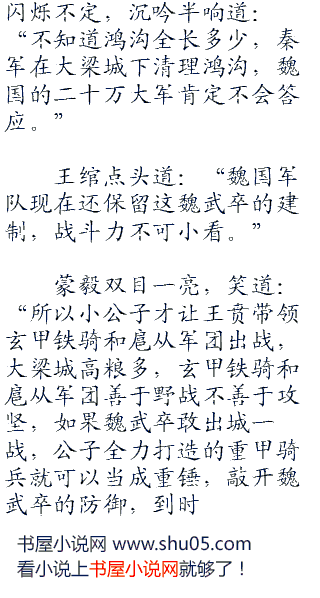 闪烁不定，沉吟半响道：
“不知道鸿沟全长多少，秦
军在大梁城下清理鸿沟，魏
国的二十万大军肯定不会答
应。”
王绾点头道：“魏国军
队现在还保留这魏武卒的建
制，战斗力不可小看。”
蒙毅双目一亮，笑道：
“所以小公子才让王贲带领
玄甲铁骑和扈从军团出战，
大梁城高粮多，玄甲铁骑和
扈从军团善于野战不善于攻
坚，如果魏武卒敢出城一
战，公子全力打造的重甲骑
兵就可以当成重锤，敲开魏
武卒的防御，到时
书屋小说网 www.shu05.com
看小说上书屋小说网就够了！